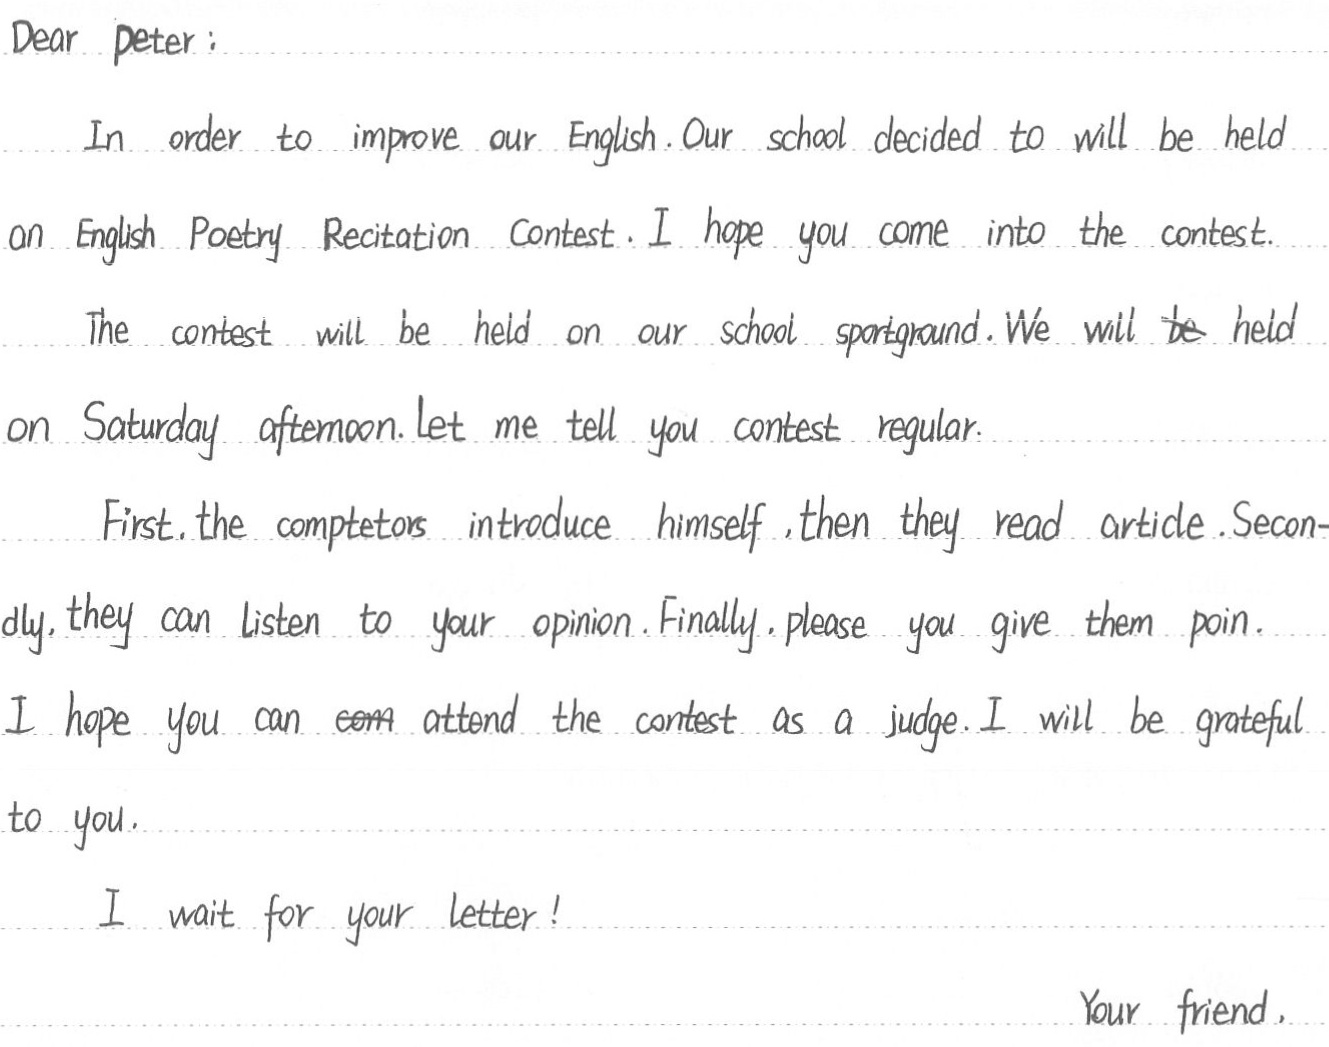 Dear peter:
In order to improve our English. Our school decided to will be held
an English Poetry Recitation Contest. I hope you come into the contest.
The contest will be held on our school sportground. We will be held
on Saturday afternoon. Let me tell you contest regular.
First, the comptetors introduce himself, then they read article. Secon-
dly, they can Listen to your opinion. Finally, please you give them poin.
I hope you can com attend the contest as a judge. I will be grateful
to you.
I wait for your letter!
Your friend.